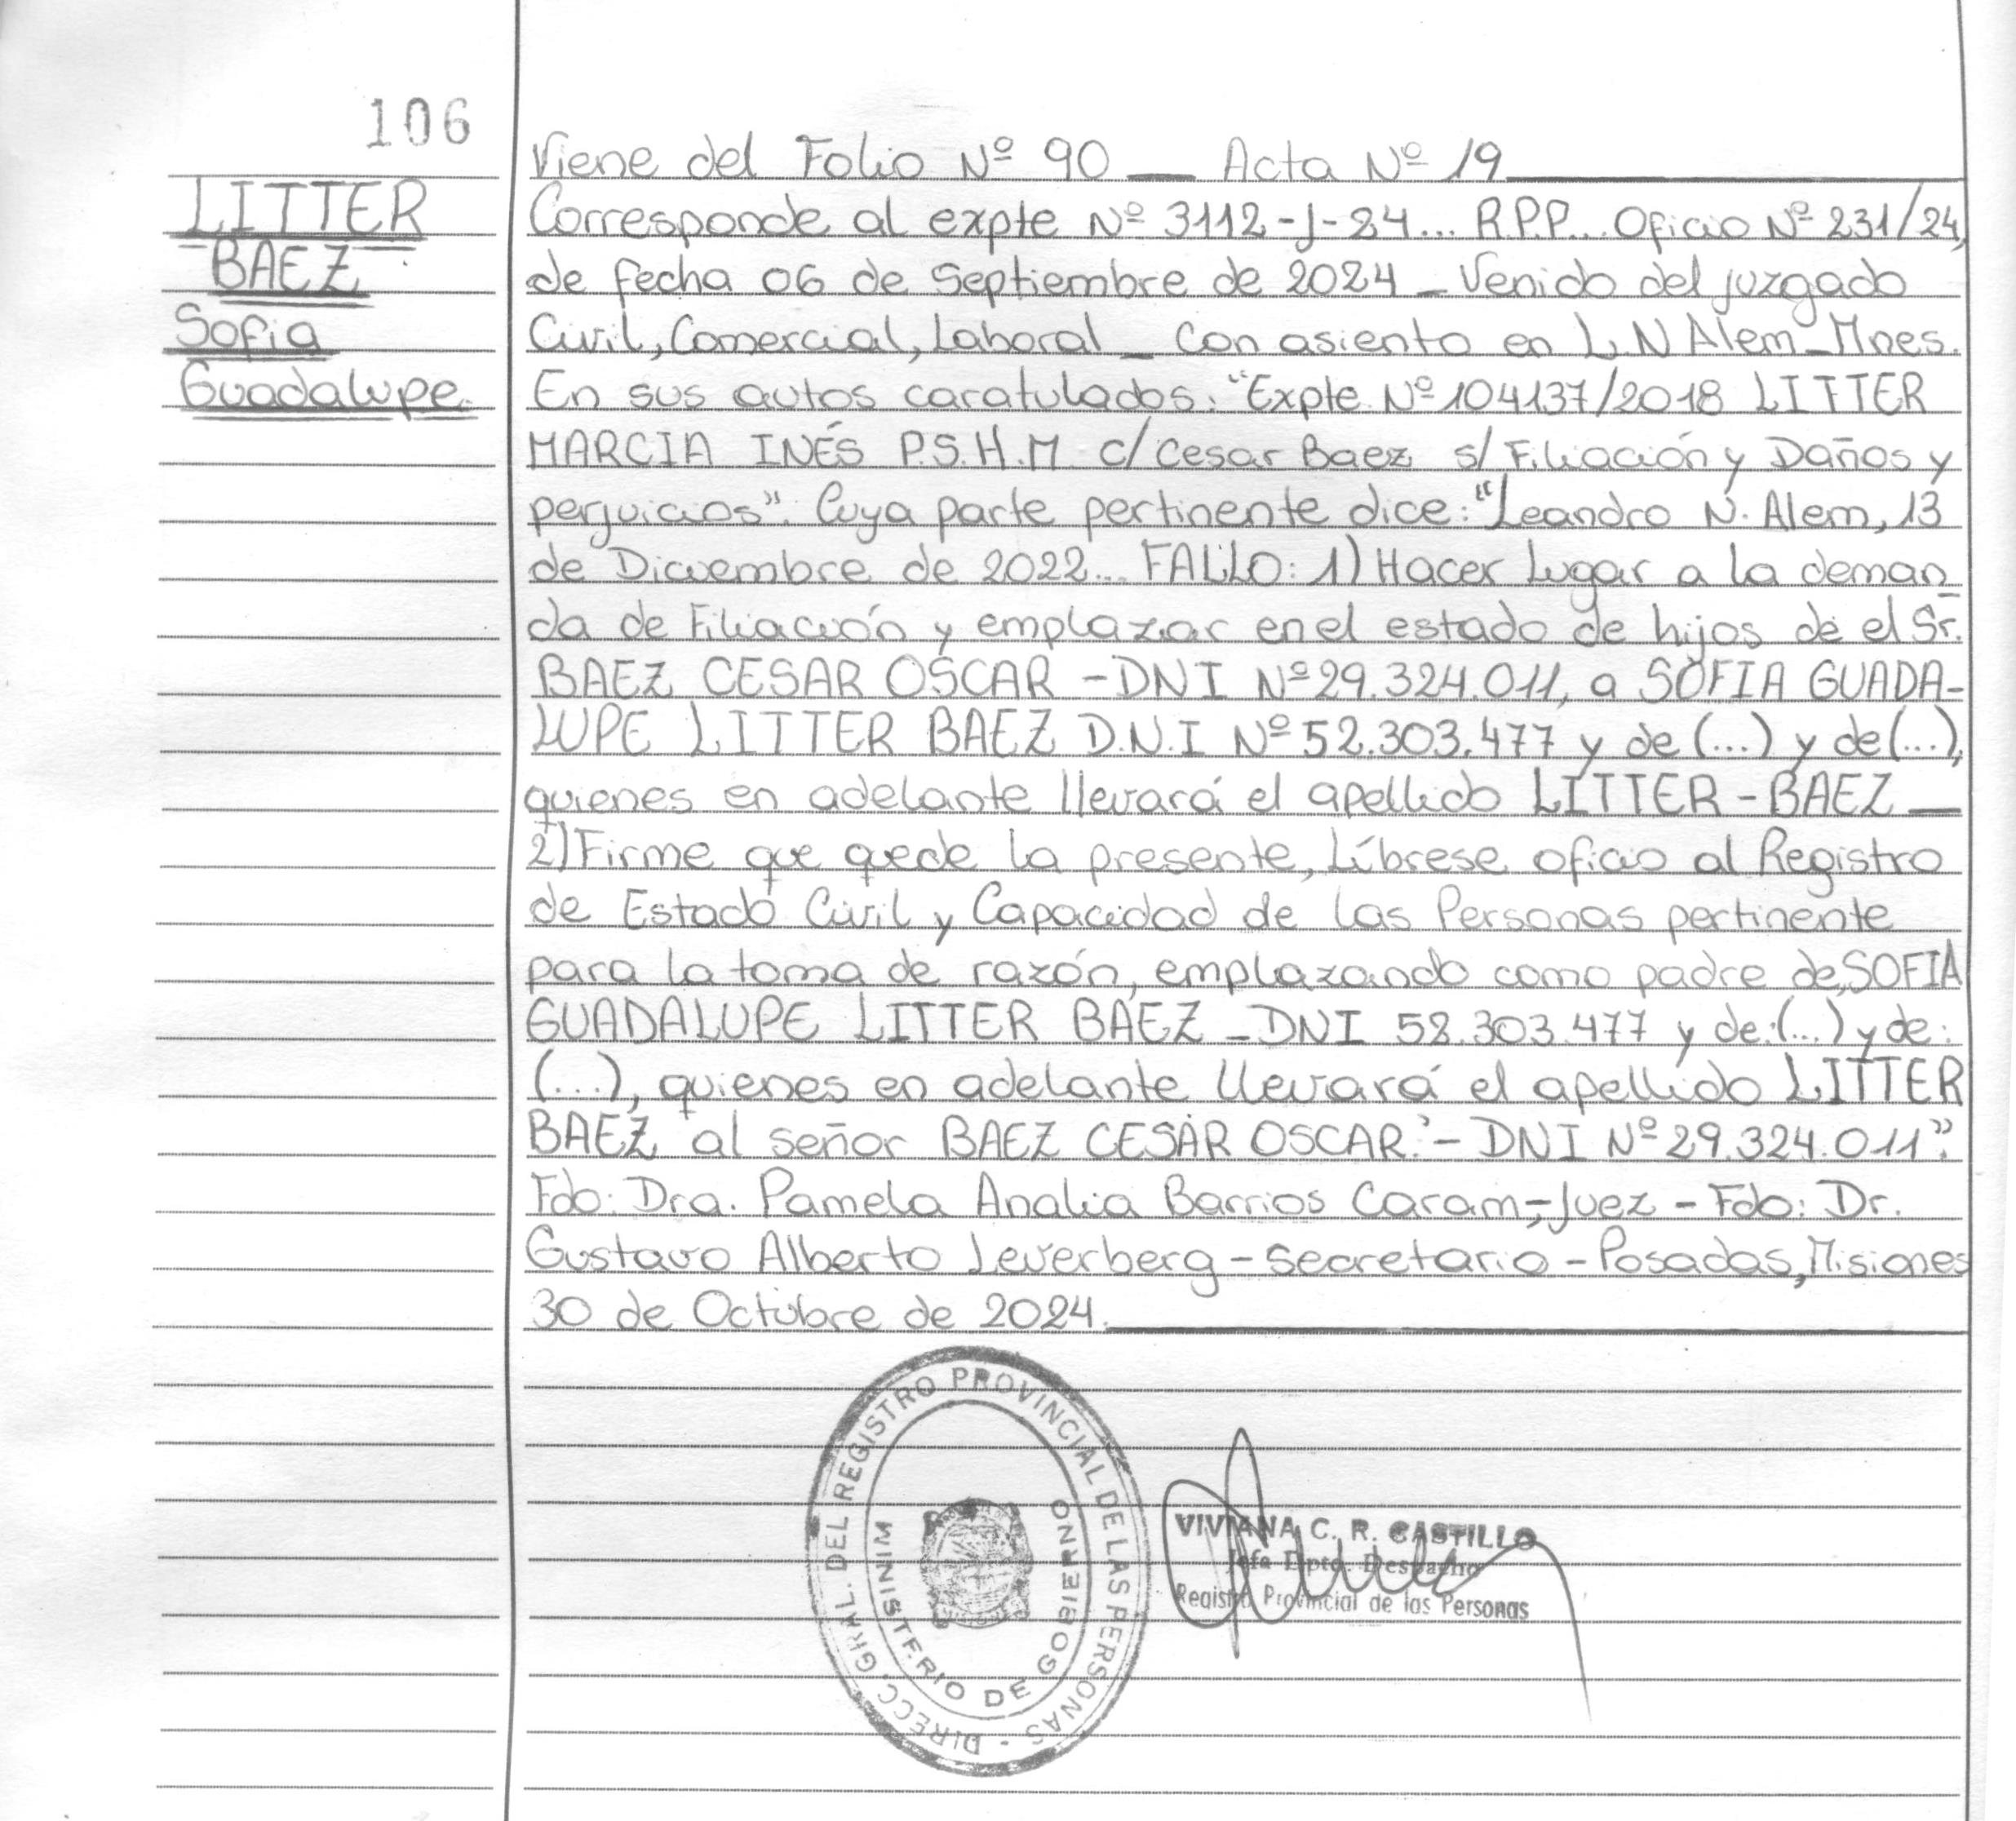 106
LITTER
BAEZ
Sofia
Guadalupe.
Viene del Folio Nº 90 — Acta Nº 19
Corresponde al expte Nº 3112-J-24... R.P.P... Oficio Nº 231/24,
de fecha 06 de Septiembre de 2024 - Venido del juzgado
Civil, Comercial, Laboral - Con asiento en L.N Alem-Mnes.
En sus autos caratulados: "Expte Nº 104137/2018 LITTER
MARCIA INÉS P.S.H.M c/ Cesar Baez s/ Filiación y Daños y
perjuicios". Cuya parte pertinente dice: "Leandro N. Alem, 13
de Diciembre de 2022... FALLO: 1) Hacer Lugar a la deman
da de Filiación y emplazar en el estado de hijos de el Sr.
BAEZ CESAR OSCAR - DNI Nº 29.324.011, a SOFIA GUADA-
LUPE LITTER BAEZ D.N.I Nº 52.303.477 y de (...) y de (...),
quienes en adelante llevará el apellido LITTER - BAEZ —
2) Firme que qede la presente, Líbrese oficio al Registro
de Estado Civil y Capacidad de las Personas pertinente
para la toma de razón, emplazando como padre de SOFIA
GUADALUPE LITTER BAEZ - DNI 52.303.477 y de: (...) y de:
(...), quienes en adelante llevará el apellido LITTER
BAEZ al señor BAEZ CESAR OSCAR.- DNI Nº 29.324.011".
Fdo: Dra. Pamela Analia Barrios Caram - Juez - Fdo: Dr.
Gustavo Alberto Leverberg - Secretario - Posadas, Misiones
30 de Octubre de 2024.
DIRECC. GRAL. DEL REGISTRO PROVINCIAL DE LAS PERSONAS -
MINISTERIO DE GOBIERNO
VIVIANA C. R. CASTILLO
Jefa Dpto. Despacho
Registro Provincial de las Personas